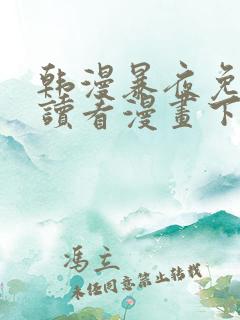 韩漫暴夜免
讀看漫畫下
冯立
未经同意禁止转载